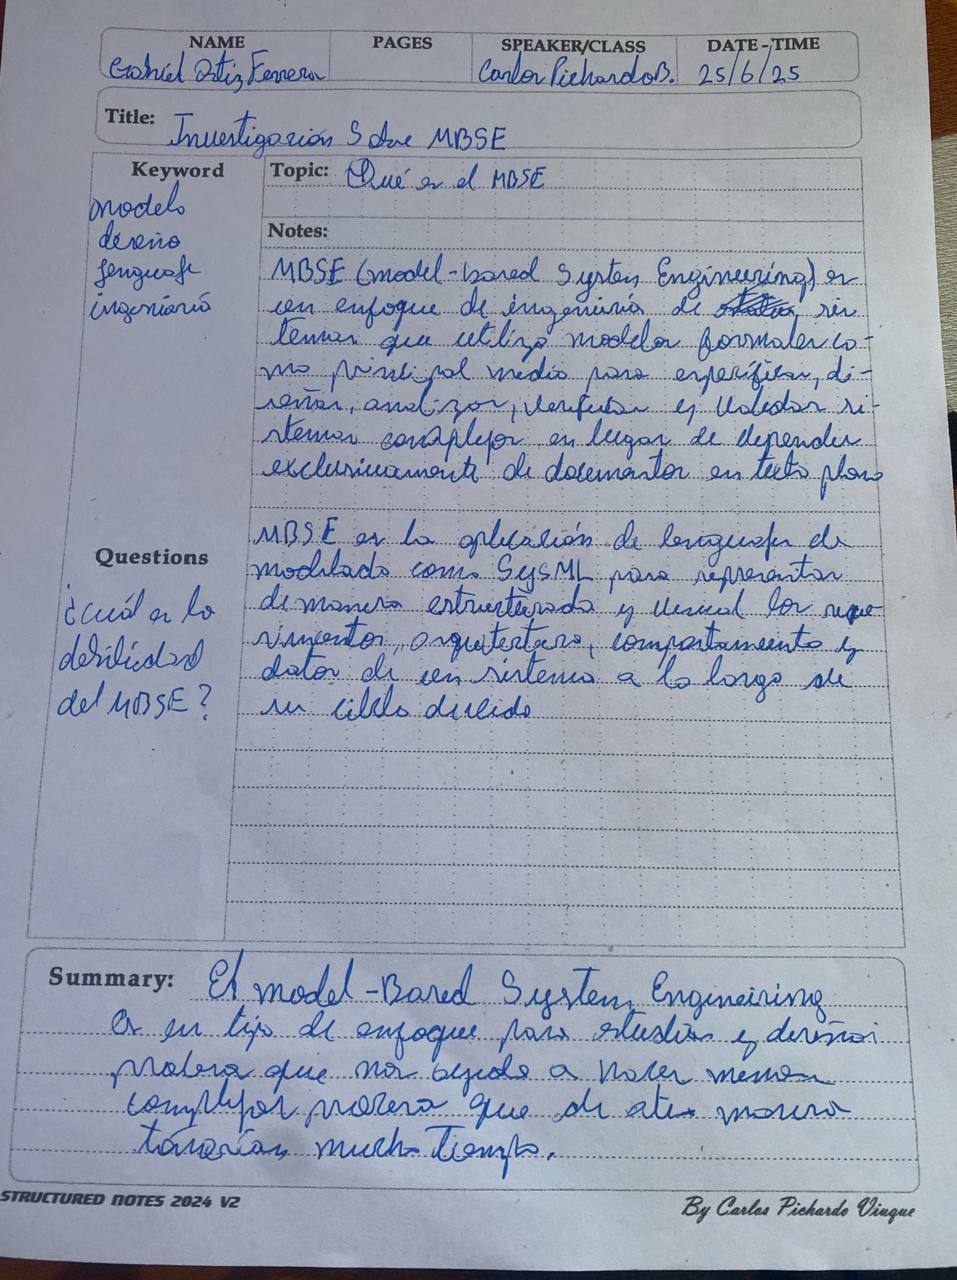 NAME PAGES SPEAKER/CLASS DATE-TIME
Ortiz Ferrera Carlos Pichardo B. 25/6/25
Title: Investigación Sobre MBSE
Keyword
modelo
diseño
lenguaje
ingeniería
Topic: Qué es el MBSE
Notes:
MBSE (model-based System Engineering) es
un enfoque de ingeniería de sis
temas que utiliza modelos formales co-
mo principal medio para especificar, di-
señar, analizar, verificar y validar si-
stemas complejos en lugar de depender
exclusivamente de documentos en texto plano
MBSE es la aplicación de lenguajes de
modelado como SysML para representar
de manera estructurada y visual los reque
rimientos, arquitectura, comportamiento y
datos de un sistema a lo largo de
su ciclo de vida
Questions
¿cuál es la
debilidad
del MBSE?
Summary: El model-Based System Engineiring
es un tipo de enfoque para estudiar y diseñar
que nos ayuda a hacer menos
complejos que de manera
mucho Tiempo.
STRUCTURED NOTES 2024 V2
By Carlos Pichardo Viuque